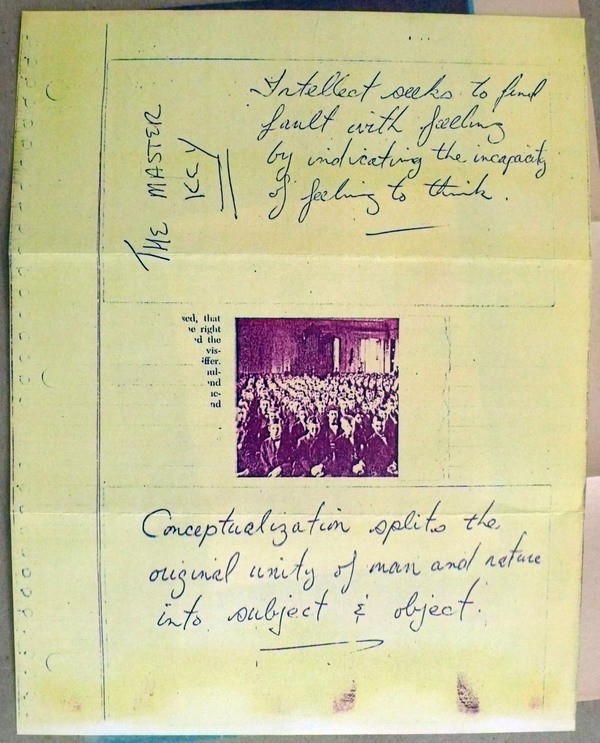 THE MASTER
KEY
Intellect seeks to find
fault with feeling
by indicating the incapacity
of feeling to think.
sed, that
e right
d the
vis-
iffer.
ul-
nd
ic-
nd
Conceptualization splits the
original unity of man and nature
into subject & object.